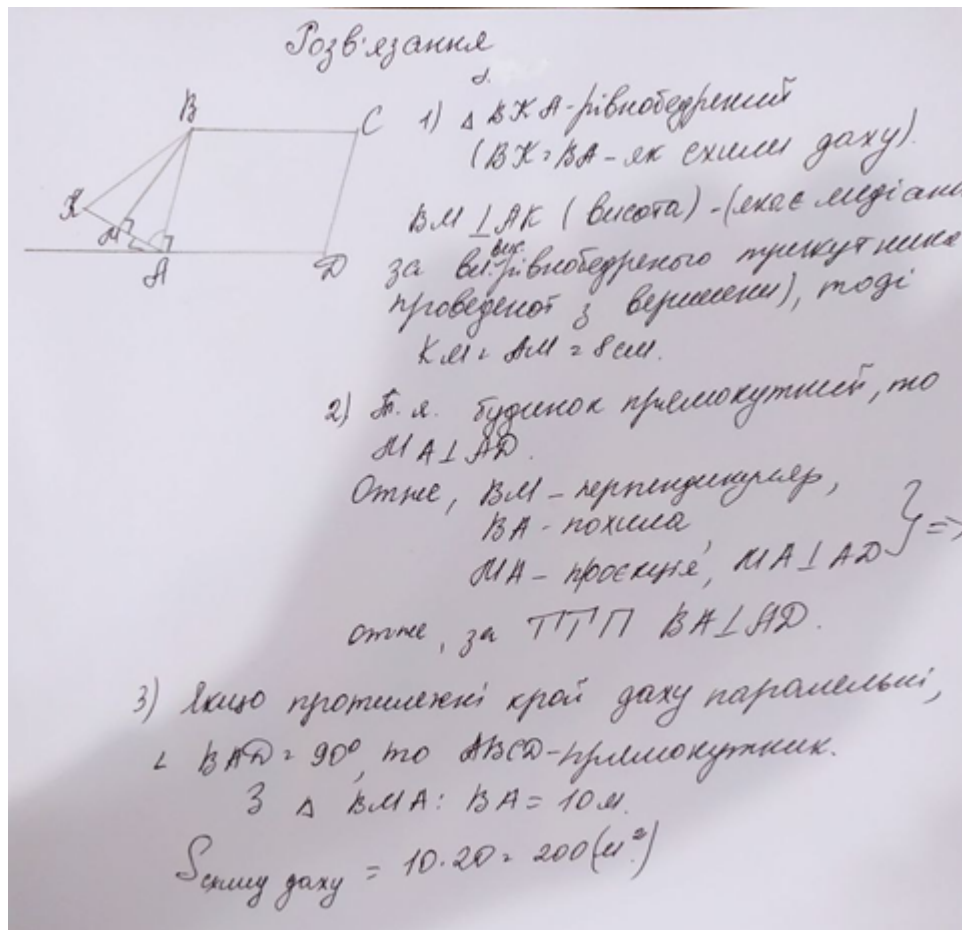 Розв'язання
B
C
K
M
A
D
1) △ BKA - рівнобедрений
(BK = BA - як схили даху).
BM ⊥ AK (висота) - (яка є медіан
за вл. рівнобедреного трикутника
вис.
проведеної з вершини), тоді
KM = AM = 8 см.
2) Т.я. будинок прямокутний, то
MA ⊥ AD.
Отже, BM - перпендикуляр,
BA - похила,
MA - проєкція, MA ⊥ AD } =>
отже, за ТТП BA ⊥ AD.
3) Якщо протилежні краї даху паралельні,
∠ BAD = 90°, то ABCD - прямокутник.
З △ BMA: BA = 10 м.
S схилу даху = 10·20 = 200 (м²)